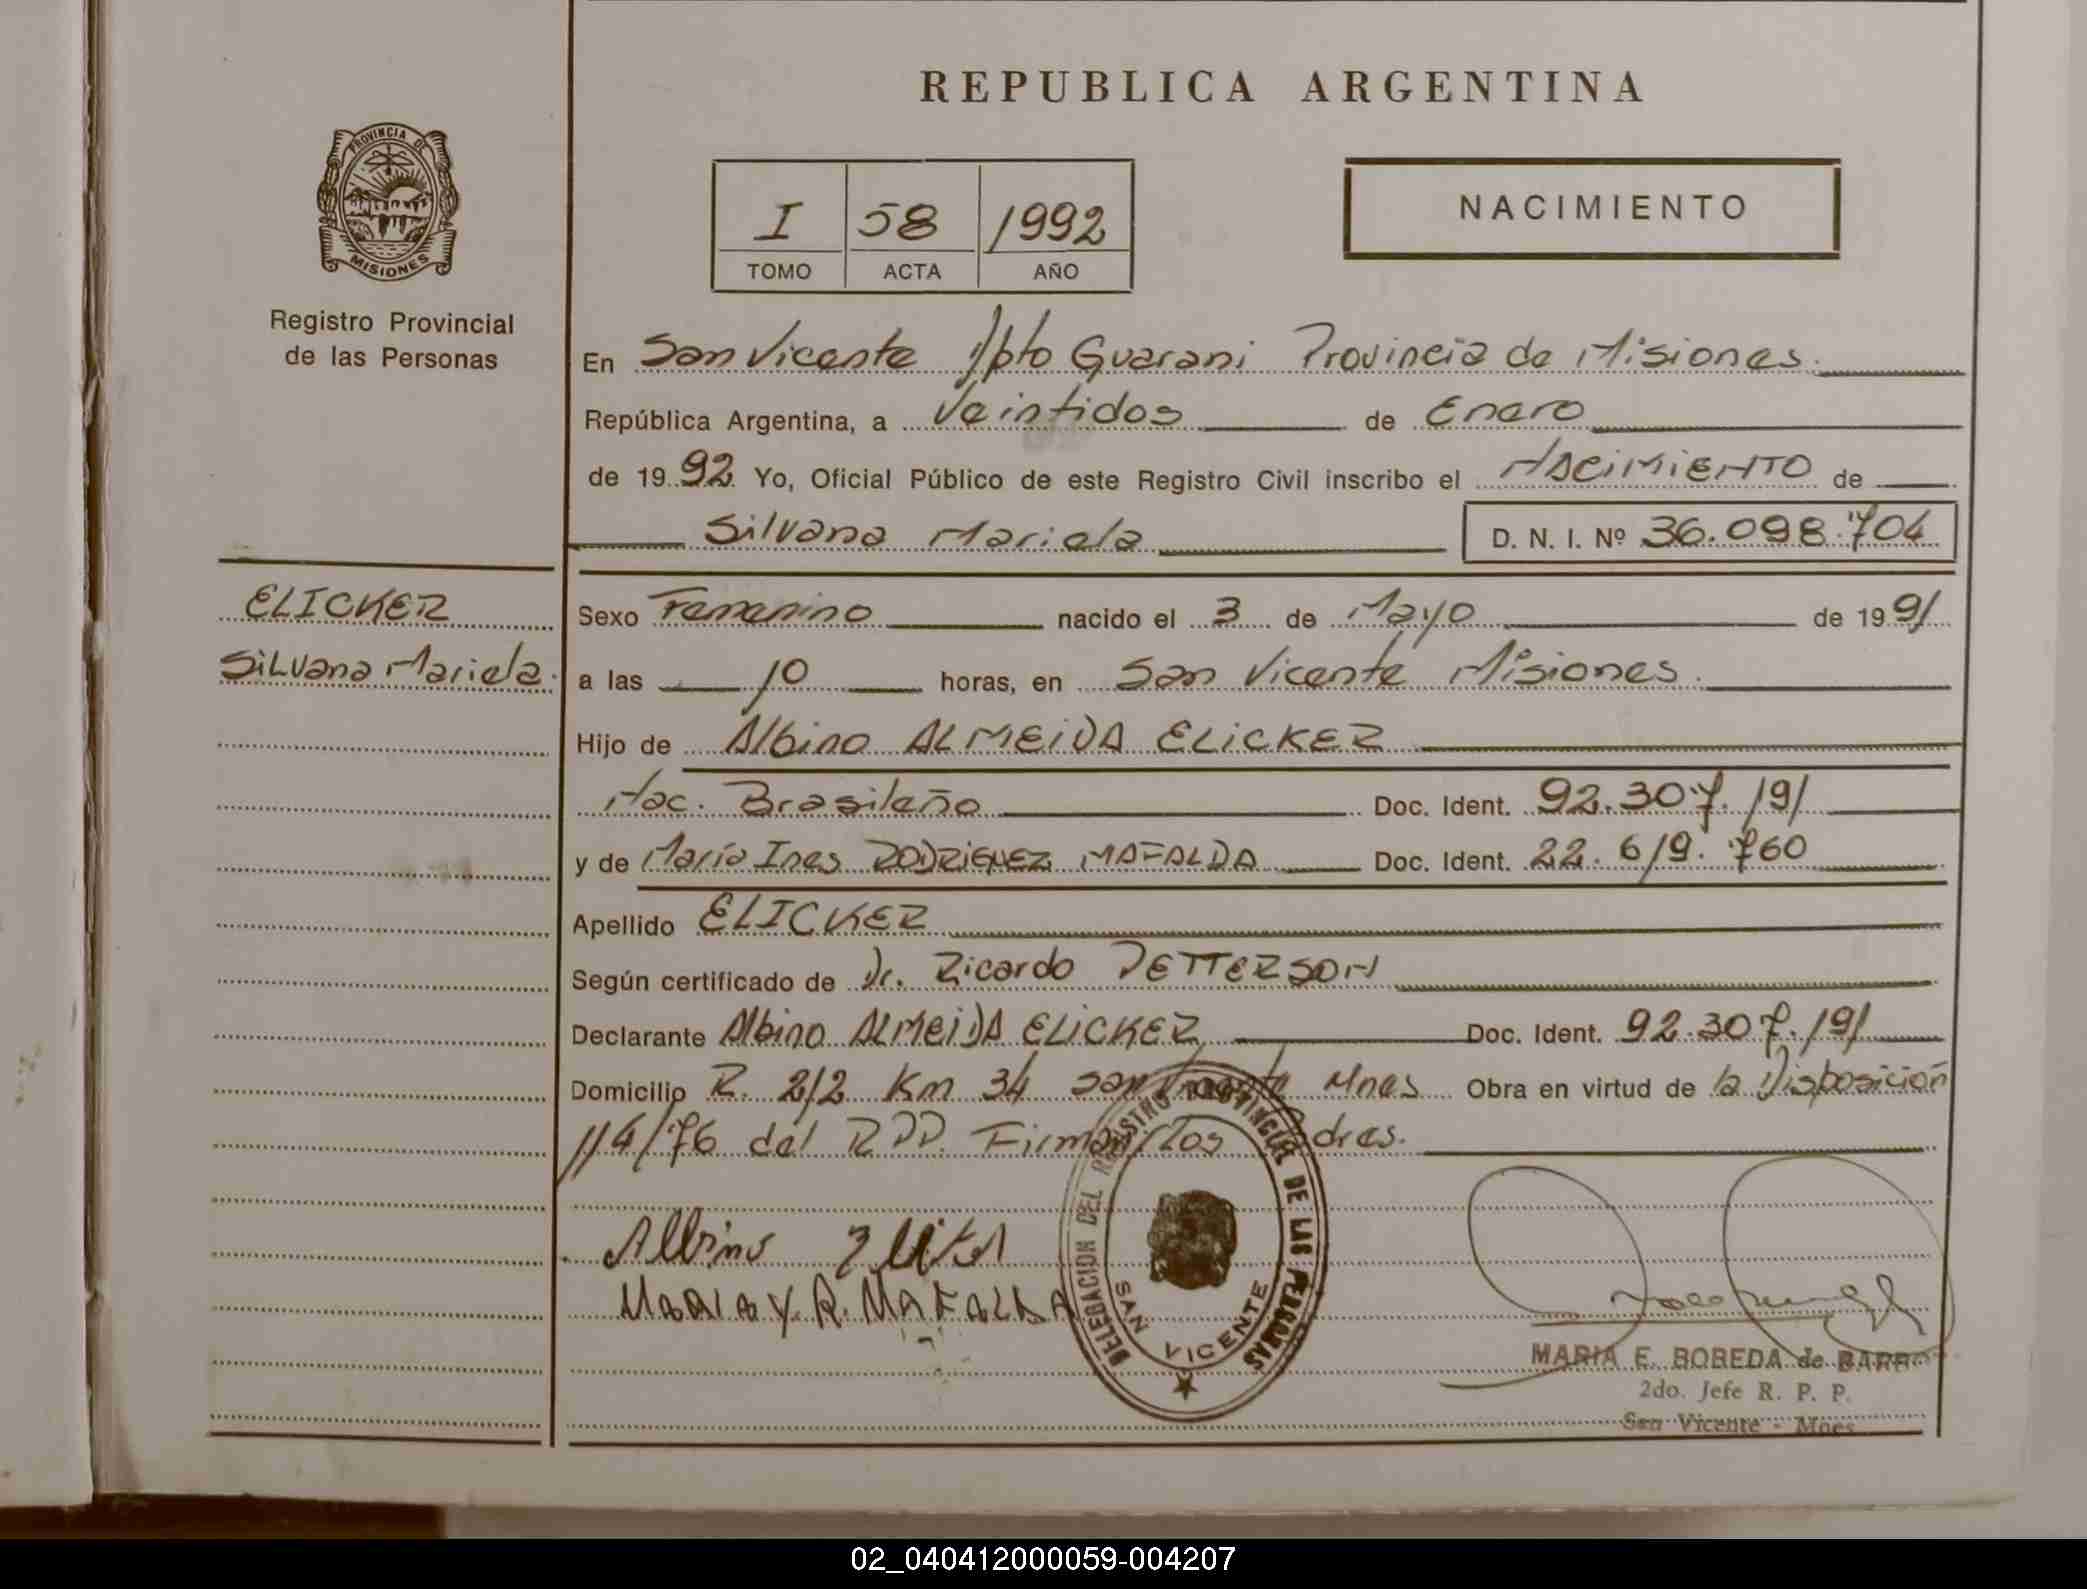 REPUBLICA ARGENTINA
PROVINCIA DE
MISIONES
Registro Provincial
de las Personas
I 58 1992
TOMO ACTA AÑO
NACIMIENTO
En San Vicente Dpto Guarani Provincia de Misiones.
República Argentina, a Veintidos de Enero
de 1992 Yo, Oficial Público de este Registro Civil inscribo el NACIMIENTO de
Silvana Mariela D. N. I. Nº 36.098.704
ELICKER
Silvana Mariela.
Sexo Femenino nacido el 3 de Mayo de 1991
a las 10 horas, en San Vicente Misiones.
Hijo de Albino ALMEIDA ELICKER
Nac. Brasileño Doc. Ident. 92.307.191
y de María Ines RODRIGUEZ MAFALDA Doc. Ident. 22.619.760
Apellido ELICKER
Según certificado de Dr. Ricardo PETTERSON
Declarante Albino ALMEIDA ELICKER Doc. Ident. 92.307.191
Domicilio R. 212 Km 34 San Vicente Mnes Obra en virtud de la Disposición
114/76 del RPP. Firman los Padres.
Albino
MARIA Y. R. MAFALDA
DELEGACION DEL REGISTRO PROVINCIAL DE LAS PERSONAS
SAN VICENTE
MARIA E. BOBEDA de BARR
2do. Jefe R. P. P.
San Vicente - Mnes
02_040412000059-004207